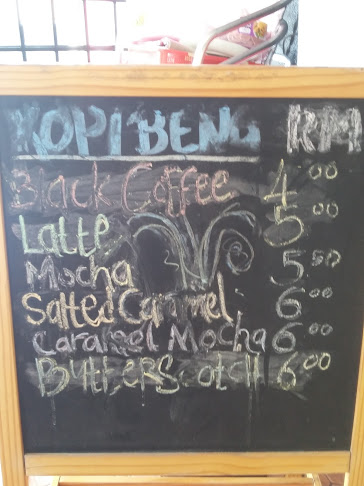 KOPI BENG RM
Black Coffee 4.00
Latte 5.00
Mocha 5.50
Salted Caramel 6.00
Caramel Mocha 6.00
Butterscotch 6.00